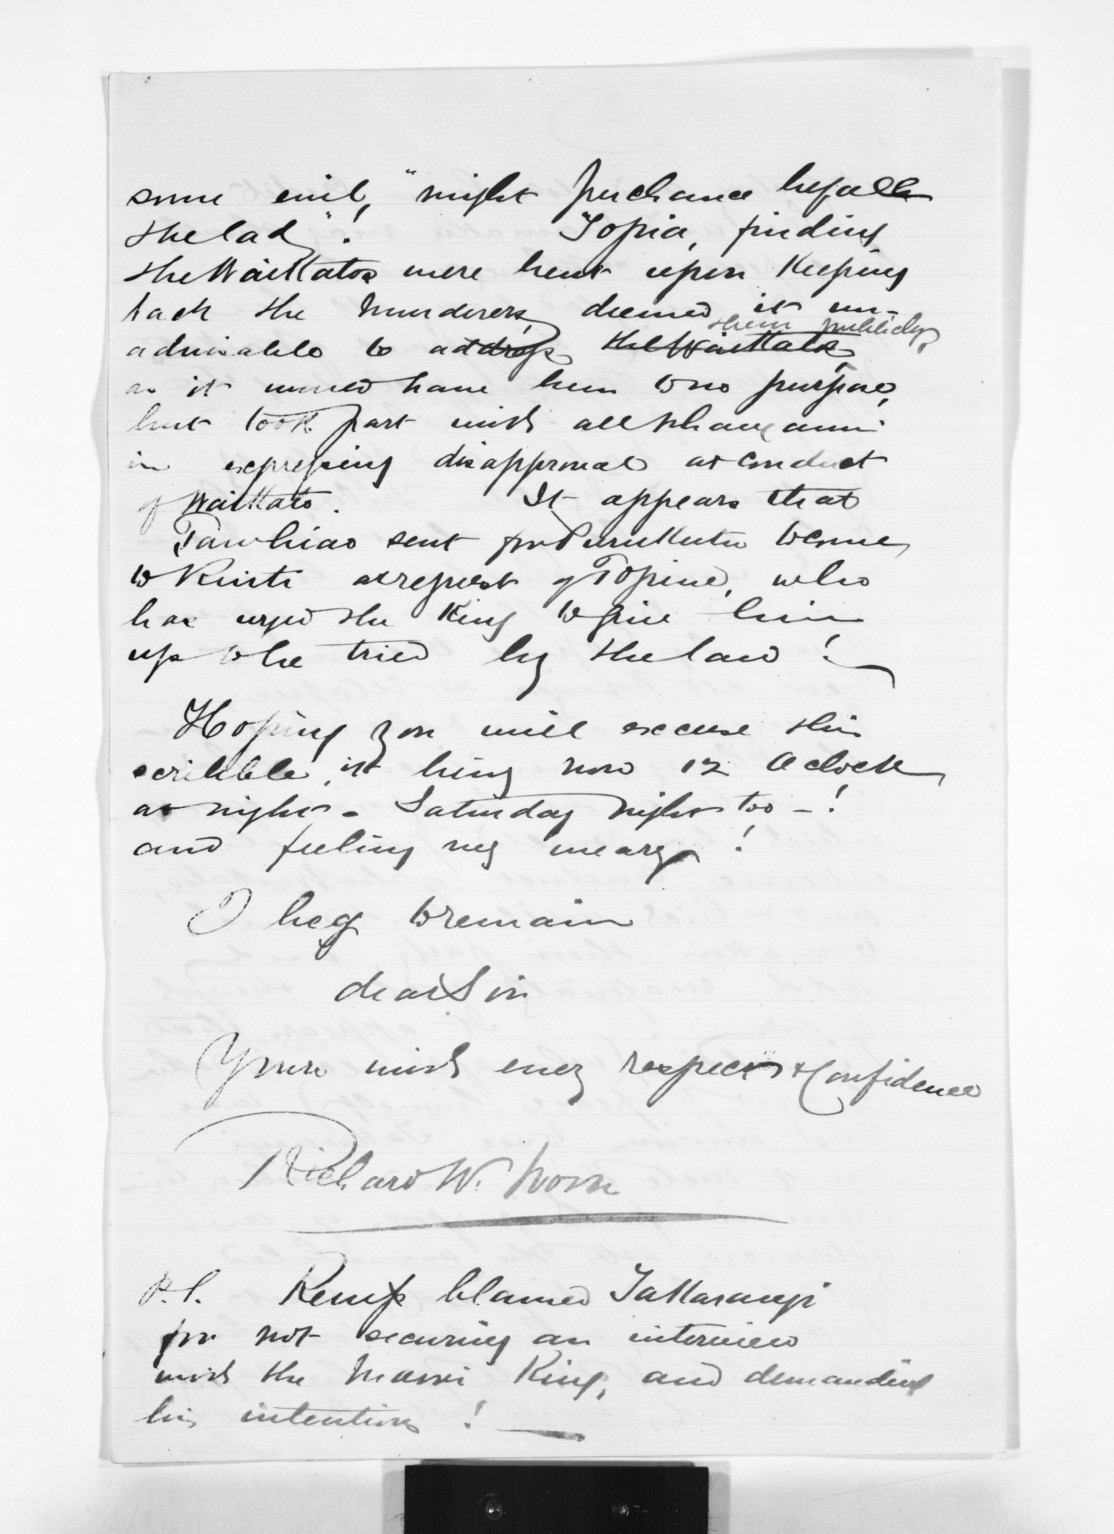 some evil, "might perchance befall
the lad"! Topia, finding
the Waikatos were bent upon keeping
back the murderers, deemed it un-
advisable to address the Waikatos, them publicly,
as it would have been to no purpose,
but took part with all Whanganui
in expressing disapproval at conduct
of Waikato. It appears that
Tawhiao sent for Purukutu to come
to Kuiti at request of Topine, who
has urged the King to give him
up to be tried by the law!
Hoping you will excuse this
scribble, it being now 12 O'clock
at night - Saturday night too - !
and feeling very weary!
I beg to remain
dear Sir
Yours with every respect & Confidence
Richard W. Woon
P.S. Kemp blamed Takarangi
for not securing an interview
with the Maori King, and demanding
his intentions!